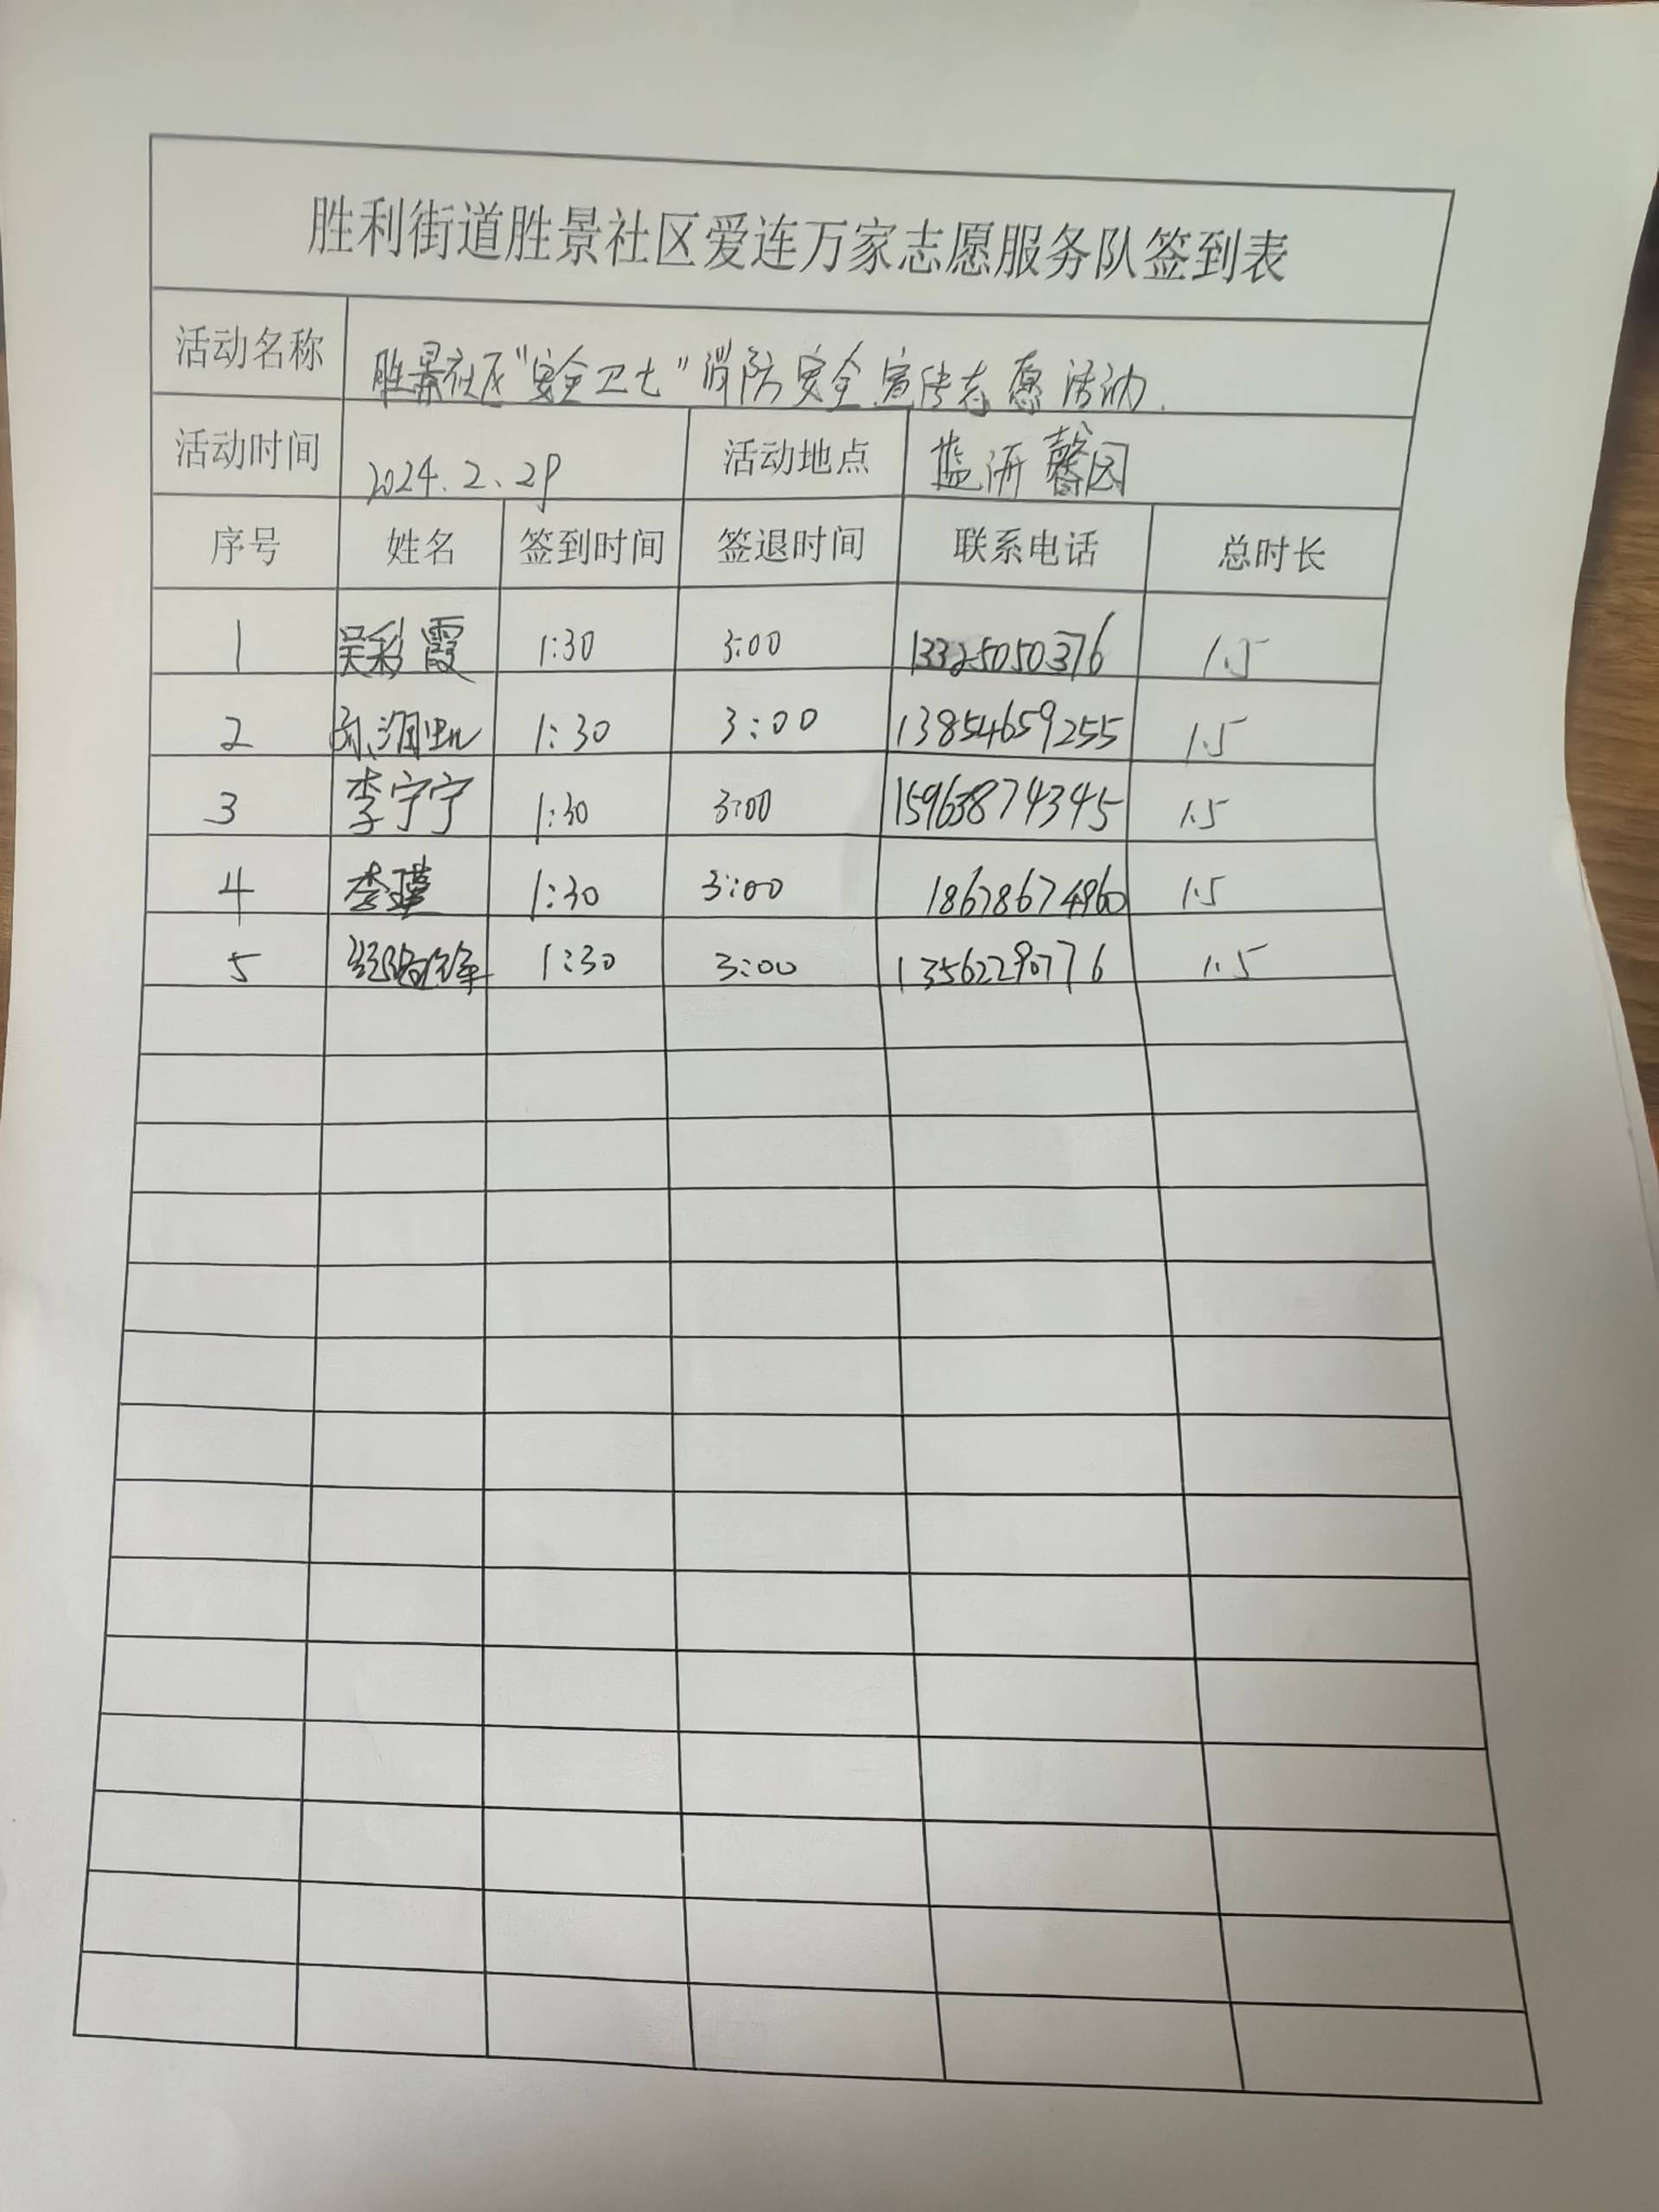 胜利街道胜景社区爱连万家志愿服务队签到表
活动名称 胜景社区“安全卫士”消防安全宣传志愿活动.
活动时间 2024.2.29 活动地点 馨园
序号 姓名 签到时间 签退时间 联系电话 总时长
1 吴彩霞 1:30 3:00 13325050376 1.5
2 1:30 3:00 13854659255 1.5
3 李宁宁 1:30 3:00 15963874345 1.5
4 李瑾 1:30 3:00 18678674960 1.5
5 1:30 3:00 13562290776 1.5